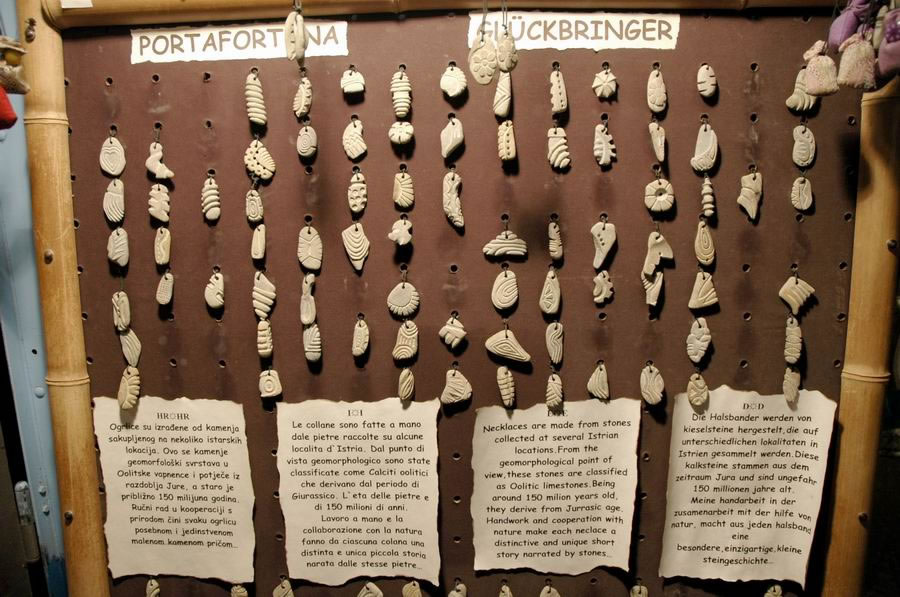 PORTAFORTUNA
GLÜCKBRINGER
HR☼HR
Ogrlice su izrađene od kamenja
sakupljenog na nekoliko istarskih
lokacija. Ovo se kamenje
geomorfološki svrstava u
Oolitske vapnence i potječe iz
razdoblja Jure, a staro je
približno 150 milijuna godina.
Ručni rad u kooperaciji s
prirodom čini svaku ogrlicu
posebnom i jedinstvenom
malenom kamenom pričom...
I☼I
Le collane sono fatte a mano
dale pietre raccolte su alcune
localita d`Istria. Dal punto di
vista geomorphologico sono state
classificate come Calciti oolitici
che derivano dal periodo di
Giurassico. L`eta delle pietre e
di 150 milioni di anni.
Lavoro a mano e la
collaborazione con la natura
fanno da ciascuna colana una
distinta e unica piccola storia
narata dalle stesse pietre...
Necklaces are made from stones
collected at several Istrian
locations.From the
geomorphological point of
view,these stones are classified
as Oolitic limestones.Being
around 150 milion years old,
they derive from Jurrasic age.
Handwork and cooperation with
nature make each neclace a
distinctive and unique short
story narrated by stones...
D☼D
Die Halsbander werden von
kieselsteine hergestellt,die auf
unterschiedlichen lokalitaten in
Istrien gesammelt werden.Diese
kalksteine stammen aus dem
zeitraum Jura und sind ungefahr
150 millionen jahre alt.
Meine handarbeit in der
zusamenarbeit mit der hilfe von
natur, macht aus jeden halsband
eine
besondere,einzigartige,kleine
steingeschichte...